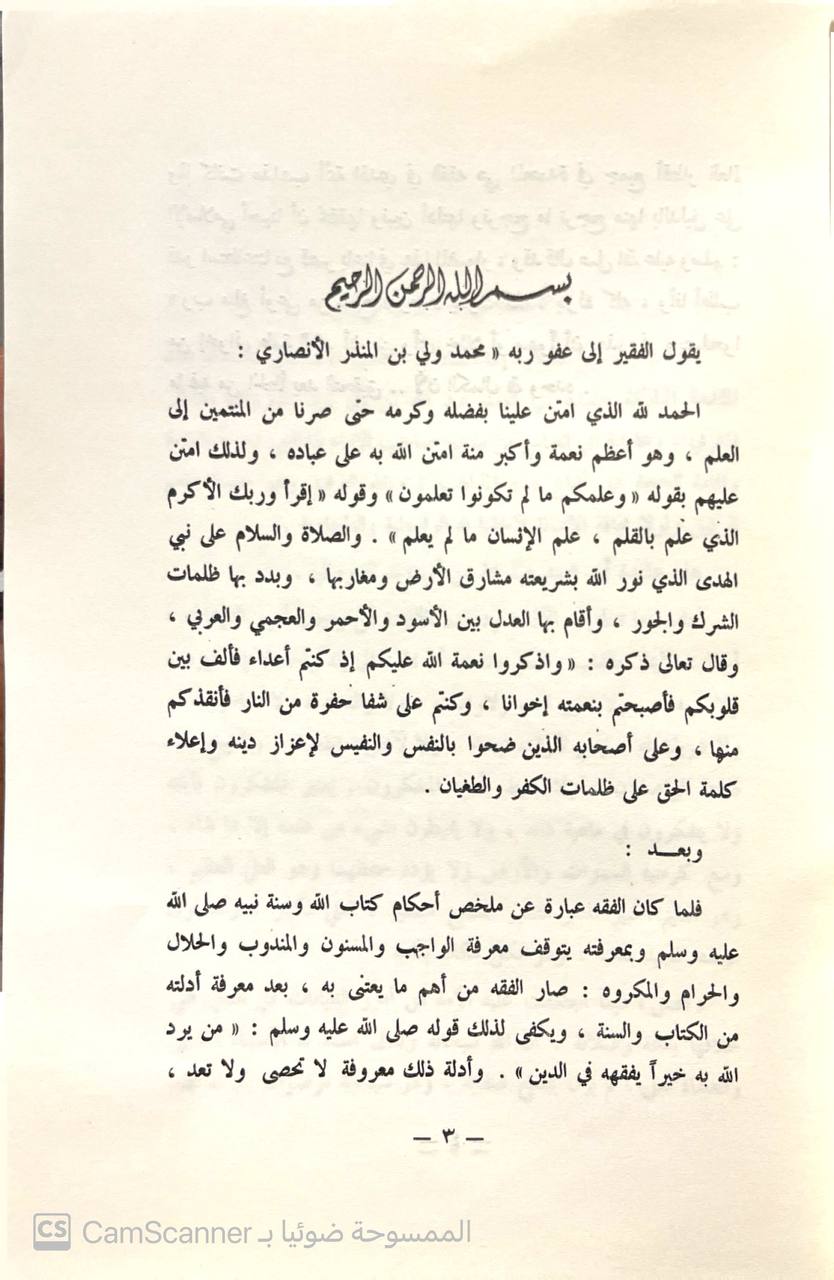 بسم الله الرحمن الرحيم
يقول الفقير إلى عفو ربه « محمد ولي بن المنذر الأنصاري :
الحمد لله الذي امتن علينا بفضله وكرمه حتى صرنا من المنتمين إلى
العلم ، وهو أعظم نعمة وأكبر منة امتن الله به على عباده ، ولذلك امتن
عليهم بقوله « وعلمكم ما لم تكونوا تعلمون » وقوله « إقرأ وربك الأكرم
الذي علم بالقلم ، علم الإنسان ما لم يعلم » . والصلاة والسلام على نبي
الهدى الذي نور الله بشريعته مشارق الأرض ومغاربها ، وبدد بها ظلمات
الشرك والجور ، وأقام بها العدل بين الأسود والأحمر والعجمي والعربي ،
وقال تعالى ذكره : « واذكروا نعمة الله عليكم إذ كنتم أعداء فألف بين
قلوبكم فأصبحتم بنعمته إخوانا ، وكنتم على شفا حفرة من النار فأنقذكم
منها ، وعلى أصحابه الذين ضحوا بالنفس والنفيس لإعزاز دينه وإعلاء
كلمة الحق على ظلمات الكفر والطغيان .
وبعـــد :
فلما كان الفقه عبارة عن ملخص أحكام كتاب الله وسنة نبيه صلى الله
عليه وسلم وبمعرفته يتوقف معرفة الواجب والمسنون والمندوب والحلال
والحرام والمكروه : صار الفقه من أهم ما يعتنى به ، بعد معرفة أدلته
من الكتاب والسنة ، ويكفى لذلك قوله صلى الله عليه وسلم : « من يرد
الله به خيراً يفقهه في الدين » . وأدلة ذلك معروفة لا تحصى ولا تعد ،
— ٣ —
CS CamScanner الممسوحة ضوئيا بـ